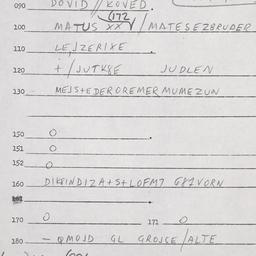 090 DOVID // KOVED.
172
100 MATUS XX / MATESEZBRUDER
110 LEJZERIXE
120 + / JUTKYE JUDLEN
130 MEJSTEDEROREMERMUMEZUN
150 O
151 O
152 O
160 DIKFINDIZA+S+LOFM7 G81VORN
170 O 171 O
180 - QMOJD GL GROJSE / ALTE